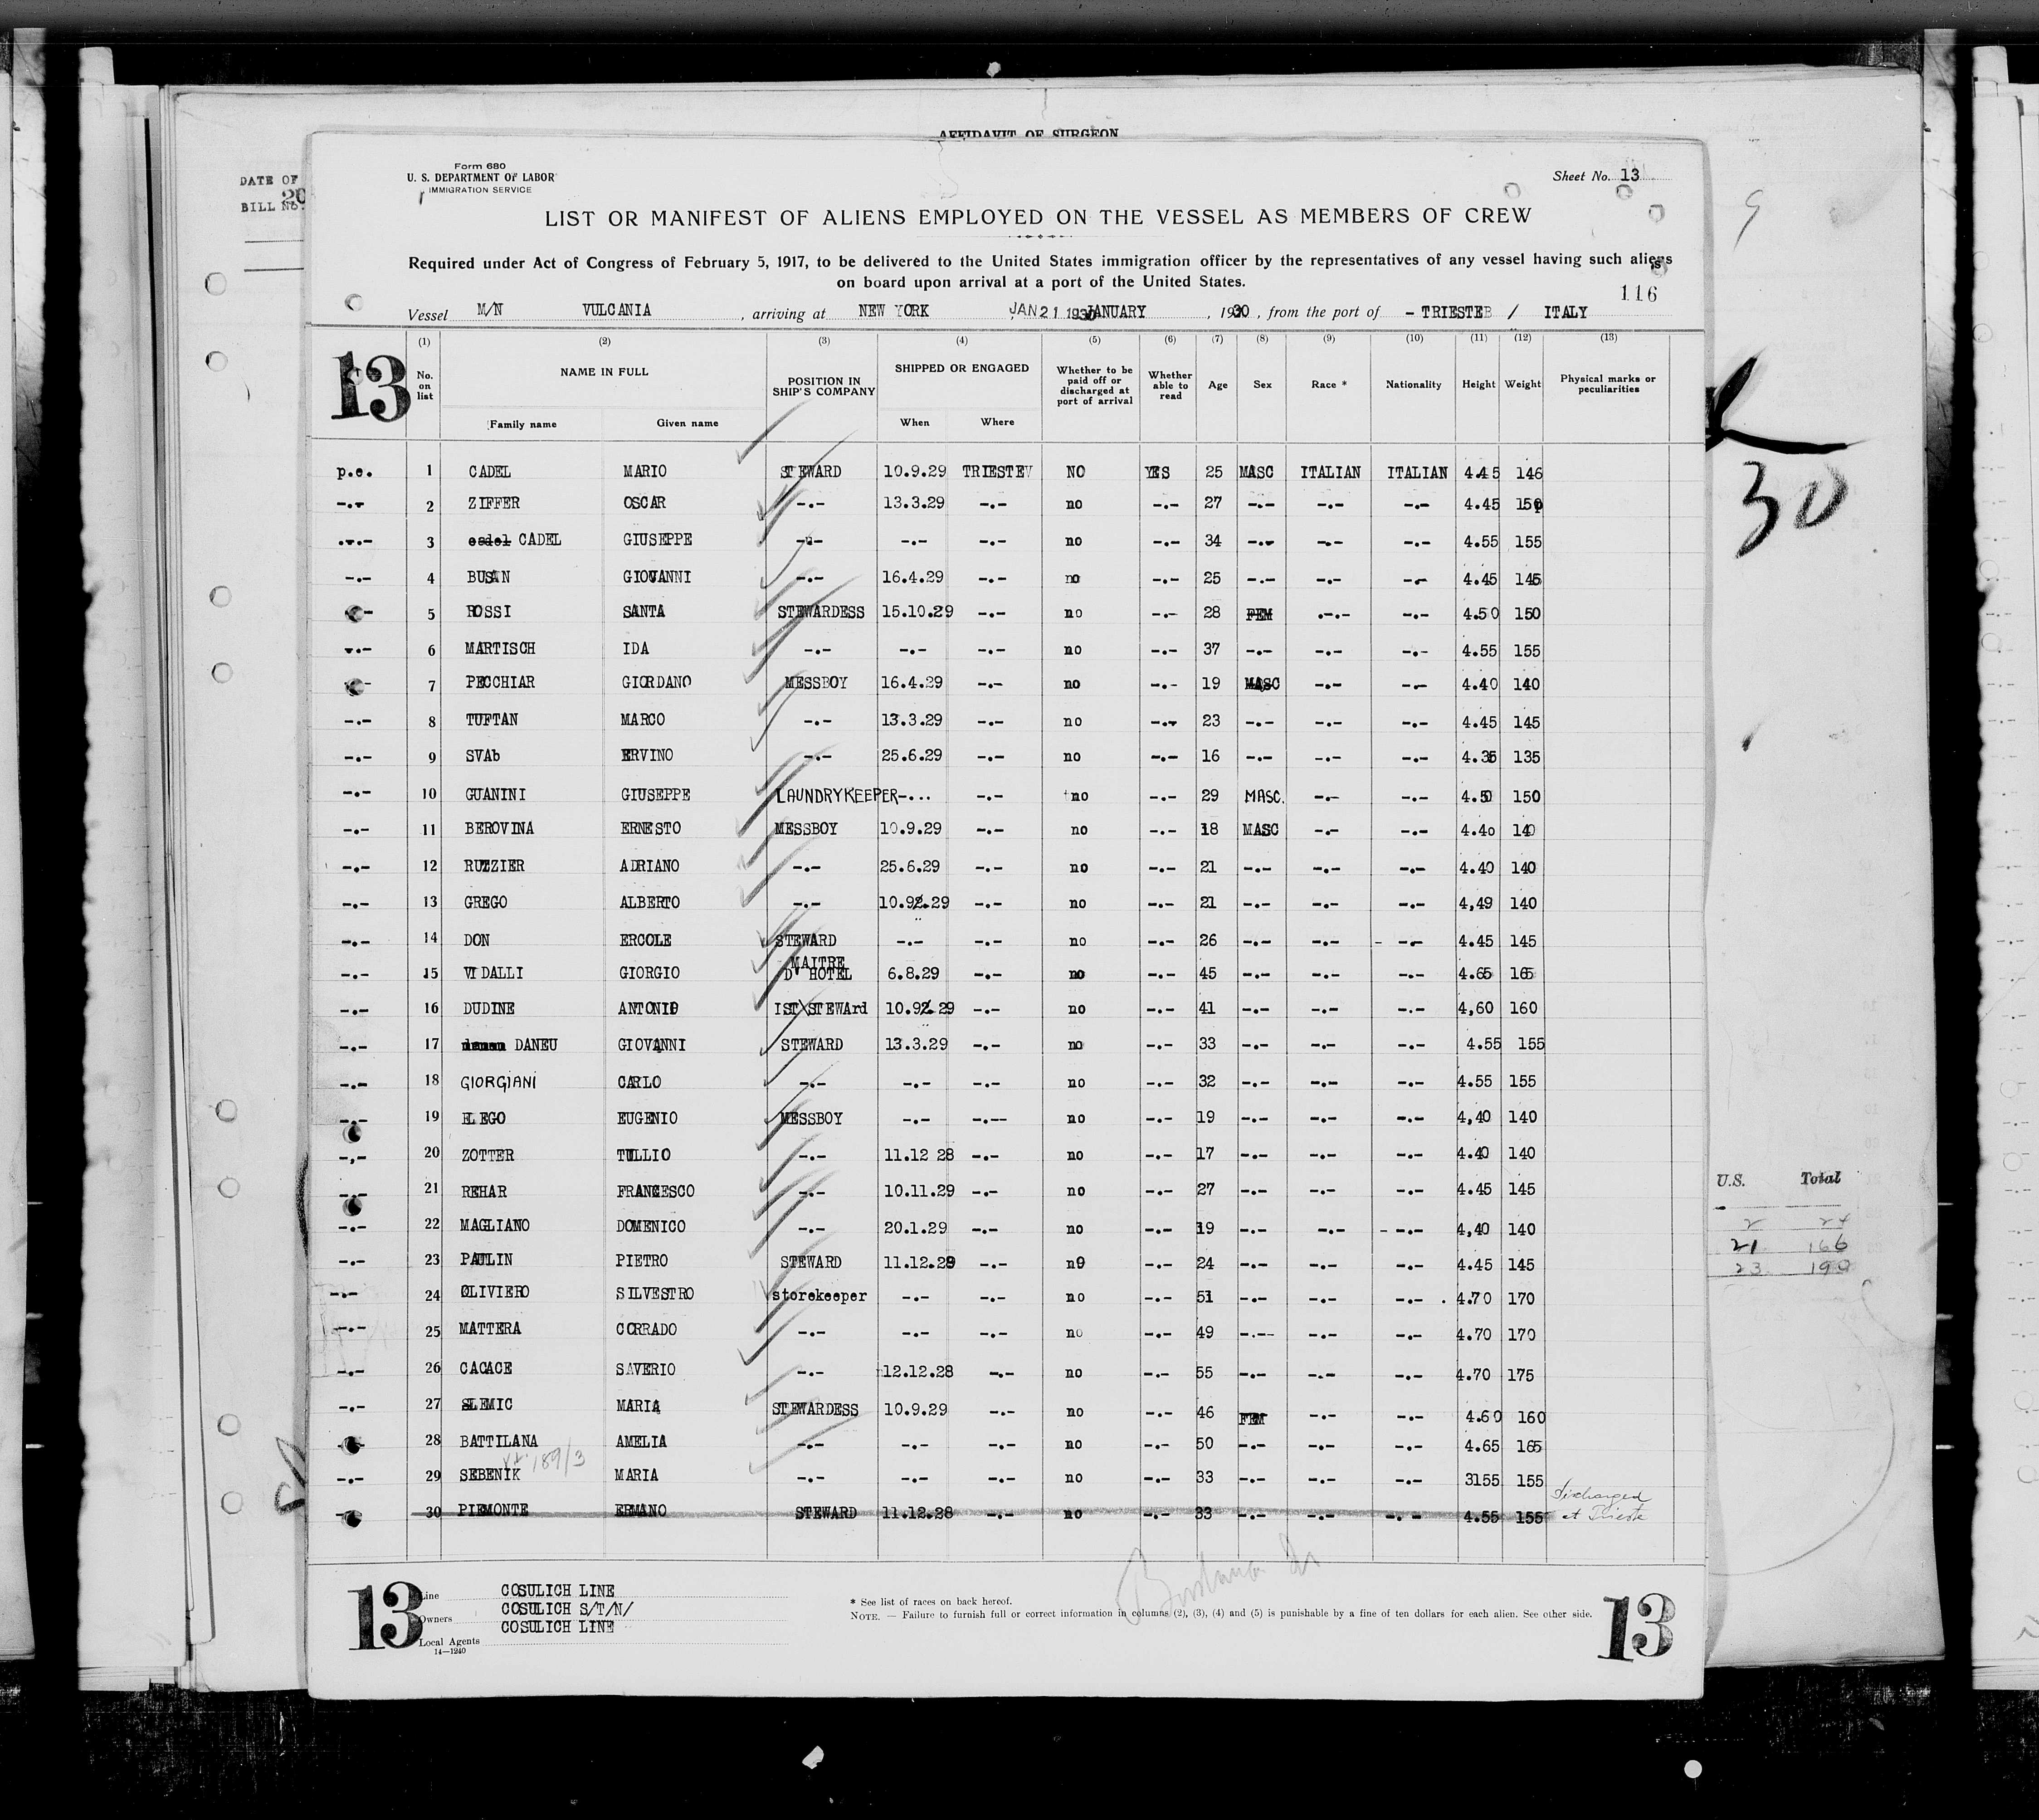 AFFIDAVIT OF SURGEON
DATE OF
20
BILL No.
Form 680
U. S. DEPARTMENT OF LABOR
IMMIGRATION SERVICE
Sheet No. 13
LIST OR MANIFEST OF ALIENS EMPLOYED ON THE VESSEL AS MEMBERS OF CREW
Required under Act of Congress of February 5, 1917, to be delivered to the United States immigration officer by the representatives of any vessel having such aliens
on board upon arrival at a port of the United States.
116
Vessel M/N VULCANIA , arriving at NEW YORK JAN 21 1930 JANUARY , 1930 , from the port of - TRIESTE / ITALY
13
(1) (2) (3) (4) (5) (6) (7) (8) (9) (10) (11) (12) (13)
No. on list NAME IN FULL Family name Given name POSITION IN SHIP'S COMPANY SHIPPED OR ENGAGED When Where Whether to be paid off or discharged at port of arrival Whether able to read Age Sex Race * Nationality Height Weight Physical marks or peculiarities
p.e. 1 CADEL MARIO STEWARD 10.9.29 TRIESTE NO YES 25 MASC ITALIAN ITALIAN 4.45 146
-.- 2 ZIFFER OSCAR -.- 13.3.29 -.- no -.- 27 -.- -.- -.- 4.45 150
-.- 3 cadel CADEL GIUSEPPE -.- -.- -.- no -.- 34 -.- -.- -.- 4.55 155
-.- 4 BUSAN GIOVANNI -.- 16.4.29 -.- no -.- 25 -.- -.- -.- 4.45 145
-.- 5 ROSSI SANTA STEWARDESS 15.10.29 -.- no -.- 28 FEM -.- -.- 4.50 150
-.- 6 MARTISCH IDA -.- -.- -.- no -.- 37 -.- -.- -.- 4.55 155
-.- 7 PECCHIAR GIORDANO MESSBOY 16.4.29 -.- no -.- 19 MASC -.- -.- 4.40 140
-.- 8 TUFTAN MARCO -.- 13.3.29 -.- no -.- 23 -.- -.- -.- 4.45 145
-.- 9 SVAb ERVINO -.- 25.6.29 -.- no -.- 16 -.- -.- -.- 4.35 135
-.- 10 GUANINI GIUSEPPE LAUNDRYKEEPER -... -.- no -.- 29 MASC. -.- -.- 4.50 150
-.- 11 BEROVINA ERNESTO MESSBOY 10.9.29 -.- no -.- 18 MASC -.- -.- 4.40 140
-.- 12 RUZZIER ADRIANO -.- 25.6.29 -.- no -.- 21 -.- -.- -.- 4.40 140
-.- 13 GREGO ALBERTO -.- 10.92.29 -.- no -.- 21 -.- -.- -.- 4,49 140
-.- 14 DON ERCOLE STEWARD -.- -.- no -.- 26 -.- -.- -.- 4.45 145
-.- 15 VIDALLI GIORGIO MAITRE D'HOTEL 6.8.29 -.- no -.- 45 -.- -.- -.- 4.65 165
-.- 16 DUDINE ANTONIO IST STEWArd 10.92.29 -.- no -.- 41 -.- -.- -.- 4,60 160
-.- 17 DANEU GIOVANNI STEWARD 13.3.29 -.- no -.- 33 -.- -.- -.- 4.55 155
-.- 18 GIORGIANI CARLO -.- -.- -.- no -.- 32 -.- -.- -.- 4.55 155
-.- 19 ELEGO EUGENIO MESSBOY -.- -.-- no -.- 19 -.- -.- -.- 4,40 140
-.- 20 ZOTTER TULLIO -.- 11.12 28 -.- no -.- 17 -.- -.- -.- 4.40 140
-.- 21 REHAR FRANCESCO -.- 10.11.29 -.- no -.- 27 -.- -.- -.- 4.45 145
-.- 22 MAGLIANO DOMENICO -.- 20.1.29 -.- no -.- 19 -.- -.- -.- 4,40 140
-.- 23 PAULIN PIETRO STEWARD 11.12.28 -.- n9 -.- 24 -.- -.- -.- 4.45 145
-.- 24 OLIVIERO SILVESTRO storekeeper -.- -.- no -.- 51 -.- -.- -.- 4.70 170
-.- 25 MATTERA CORRADO -.- -.- -.- no -.- 49 -.- -.- -.- 4.70 170
-.- 26 CACACE SAVERIO -.- 12.12.28 -.- no -.- 55 -.- -.- -.- 4.70 175
-.- 27 SLEMIC MARIA STEWARDESS 10.9.29 -.- no -.- 46 FEM -.- -.- 4.60 160
-.- 28 BATTILANA AMELIA -.- -.- -.- no -.- 50 -.- -.- -.- 4.65 165
189/3
-.- 29 SEBENIK MARIA -.- -.- -.- no -.- 33 -.- -.- -.- 3155 155
-.- 30 PIEMONTE ERMANO STEWARD 11.12.28 -.- no -.- 33 -.- -.- -.- 4.55 155 Discharged at Trieste
30
U.S. Total
2 24
21 166
23 190
13
Line COSULICH LINE
Owners COSULICH S/T/N/
Local Agents COSULICH LINE
14—1240
* See list of races on back hereof.
NOTE. — Failure to furnish full or correct information in columns (2), (3), (4) and (5) is punishable by a fine of ten dollars for each alien. See other side.
13